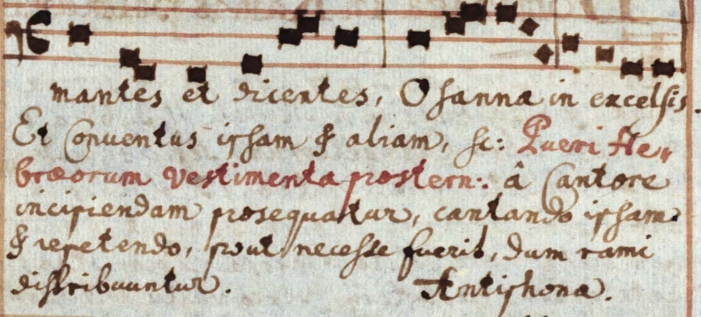 mantes et dicentes, Osanna in excelsis.
Et Conventus ipsam & aliam, sc: Pueri He,
bræorum vestimenta prostern: â Cantore
incipiendam prosequatur, cantando ipsam
& repetendo, prout necesse fuerit, dum rami
distribuuntur. Antiphona.